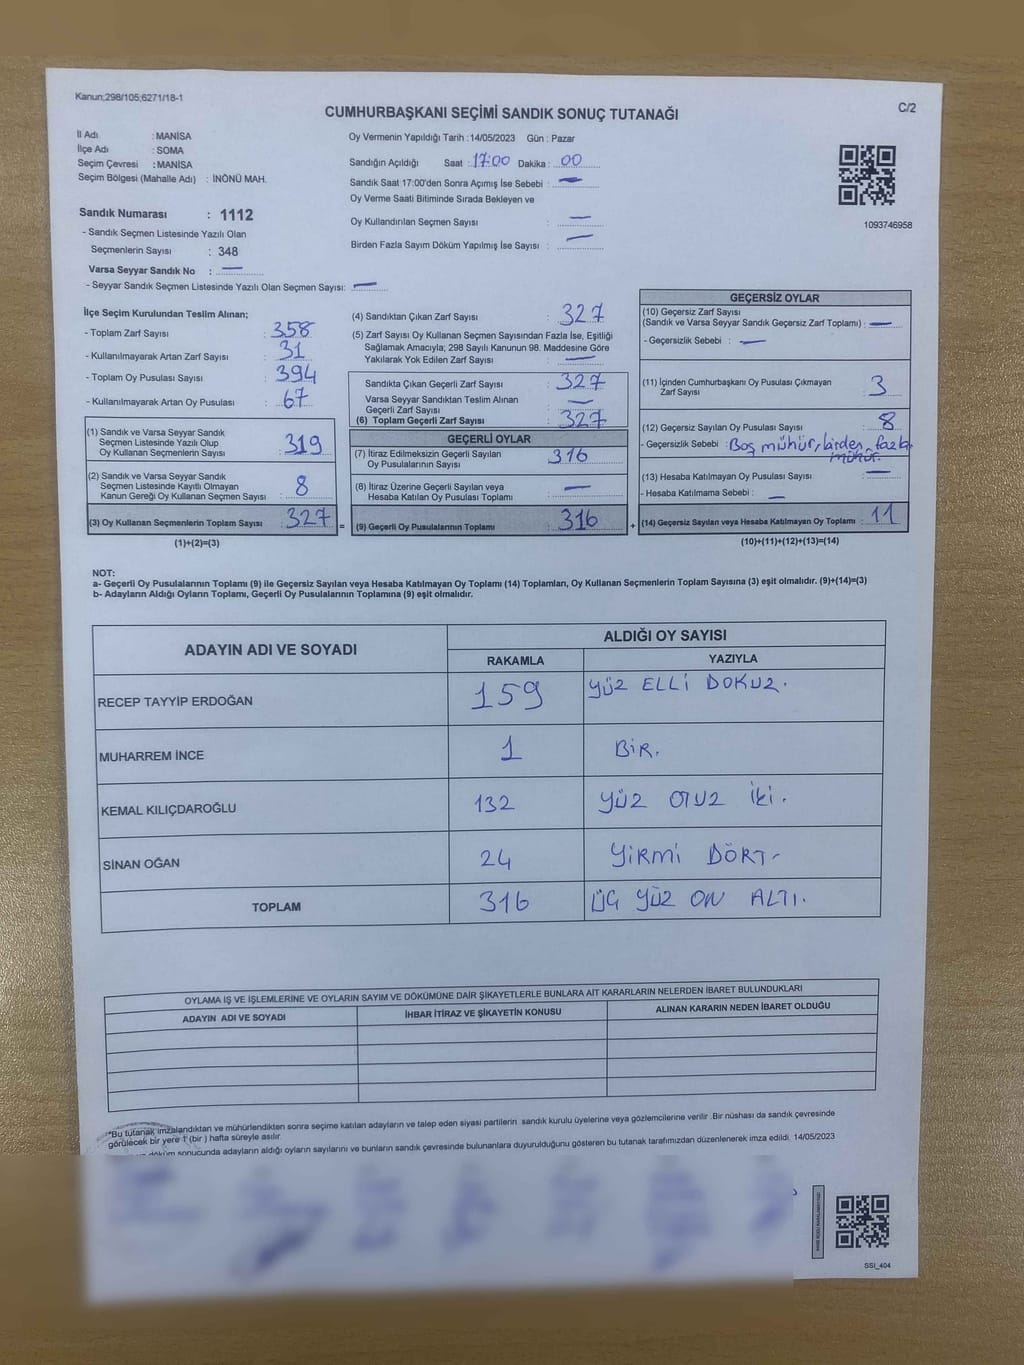 Kanun;298/105;6271/18-1
C/2
CUMHURBAŞKANI SEÇİMİ SANDIK SONUÇ TUTANAĞI
İl Adı : MANİSA
İlçe Adı : SOMA
Seçim Çevresi : MANİSA
Seçim Bölgesi (Mahalle Adı) : İNÖNÜ MAH.
Sandık Numarası : 1112
- Sandık Seçmen Listesinde Yazılı Olan
Seçmenlerin Sayısı : 348
Varsa Seyyar Sandık No : —
- Seyyar Sandık Seçmen Listesinde Yazılı Olan Seçmen Sayısı: —
Oy Vermenin Yapıldığı Tarih : 14/05/2023 Gün : Pazar
Sandığın Açıldığı Saat : 17:00 Dakika : 00
Sandık Saat 17:00'den Sonra Açımış İse Sebebi : —
Oy Verme Saati Bitiminde Sırada Bekleyen ve
Oy Kullandırılan Seçmen Sayısı : —
Birden Fazla Sayım Döküm Yapılmış İse Sayısı : —
1093746958
İlçe Seçim Kurulundan Teslim Alınan;
- Toplam Zarf Sayısı : 358
- Kullanılmayarak Artan Zarf Sayısı : 31
- Toplam Oy Pusulası Sayısı : 394
- Kullanılmayarak Artan Oy Pusulası : 67
(1) Sandık ve Varsa Seyyar Sandık
Seçmen Listesinde Yazılı Olup
Oy Kullanan Seçmenlerin Sayısı : 319
(2) Sandık ve Varsa Seyyar Sandık
Seçmen Listesinde Kayıtlı Olmayan
Kanun Gereği Oy Kullanan Seçmen Sayısı : 8
(3) Oy Kullanan Seçmenlerin Toplam Sayısı : 327 =
(1)+(2)=(3)
(4) Sandıktan Çıkan Zarf Sayısı : 327
(5) Zarf Sayısı Oy Kullanan Seçmen Sayısından Fazla İse, Eşitliği
Sağlamak Amacıyla; 298 Sayılı Kanunun 98. Maddesine Göre
Yakılarak Yok Edilen Zarf Sayısı : —
Sandıkta Çıkan Geçerli Zarf Sayısı : 327
Varsa Seyyar Sandıktan Teslim Alınan
Geçerli Zarf Sayısı : —
(6) Toplam Geçerli Zarf Sayısı : 327
GEÇERLİ OYLAR
(7) İtiraz Edilmeksizin Geçerli Sayılan
Oy Pusulalarının Sayısı : 316
(8) İtiraz Üzerine Geçerli Sayılan veya
Hesaba Katılan Oy Pusulası Toplamı : —
(9) Geçerli Oy Pusulalarının Toplamı : 316 +
GEÇERSİZ OYLAR
(10) Geçersiz Zarf Sayısı
(Sandık ve Varsa Seyyar Sandık Geçersiz Zarf Toplamı) : —
- Geçersizlik Sebebi : —
(11) İçinden Cumhurbaşkanı Oy Pusulası Çıkmayan
Zarf Sayısı : 3
(12) Geçersiz Sayılan Oy Pusulası Sayısı : 8
- Geçersizlik Sebebi : Boş mühür, birden fazla
mühür.
(13) Hesaba Katılmayan Oy Pusulası Sayısı : —
- Hesaba Katılmama Sebebi : —
(14) Geçersiz Sayılan veya Hesaba Katılmayan Oy Toplamı : 11
(10)+(11)+(12)+(13)=(14)
NOT:
a- Geçerli Oy Pusulalarının Toplamı (9) ile Geçersiz Sayılan veya Hesaba Katılmayan Oy Toplamı (14) Toplamları, Oy Kullanan Seçmenlerin Toplam Sayısına (3) eşit olmalıdır. (9)+(14)=(3)
b- Adayların Aldığı Oyların Toplamı, Geçerli Oy Pusulalarının Toplamına (9) eşit olmalıdır.
ADAYIN ADI VE SOYADI
ALDIĞI OY SAYISI
RAKAMLA YAZIYLA
RECEP TAYYİP ERDOĞAN 159 YÜZ ELLİ DOKUZ.
MUHARREM İNCE 1 BİR.
KEMAL KILIÇDAROĞLU 132 YÜZ OTUZ İKİ.
SİNAN OĞAN 24 YİRMİ DÖRT.
TOPLAM 316 ÜÇ YÜZ ON ALTI.
OYLAMA İŞ VE İŞLEMLERİNE VE OYLARIN SAYIM VE DÖKÜMÜNE DAİR ŞİKAYETLERLE BUNLARA AİT KARARLARIN NELERDEN İBARET BULUNDUKLARI
ADAYIN ADI VE SOYADI İHBAR İTİRAZ VE ŞİKAYETİN KONUSU ALINAN KARARIN NEDEN İBARET OLDUĞU
*Bu tutanak imzalandıktan ve mühürlendikten sonra seçime katılan adayların ve talep eden siyasi partilerin sandık kurulu üyelerine veya gözlemcilerine verilir .Bir nüshası da sandık çevresinde
görülecek bir yere 1 (bir ) hafta süreyle asılır.
döküm sonucunda adayların aldığı oyların sayılarını ve bunların sandık çevresinde bulunanlara duyurulduğunu gösteren bu tutanak tarafımızdan düzenlenerek imza edildi. 14/05/2023
SSI_404